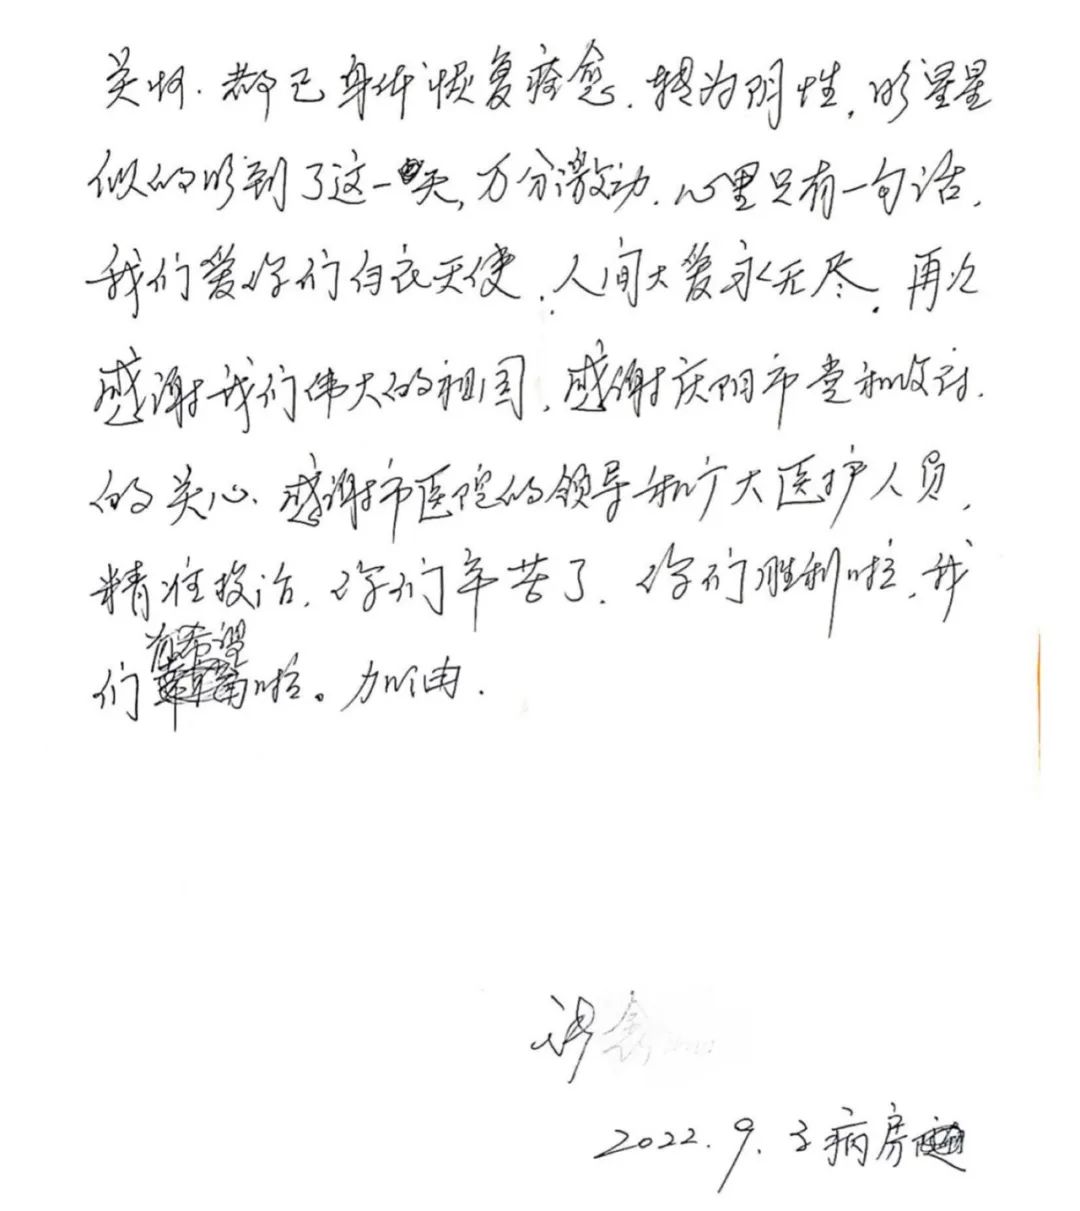 关怀.都已身体恢复痊愈.转为阴性,盼星星
似的盼到了这一天,万分激动.心里只有一句话.
我们爱你们白衣天使.人间大爱永无尽.再次
感谢我们伟大的祖国.感谢庆阳市党和政府.
的关心.感谢市医院的领导和广大医护人员,
精准救治.你们辛苦了.你们胜利啦,我
们有希望啦。加油.
2022.9.于病房